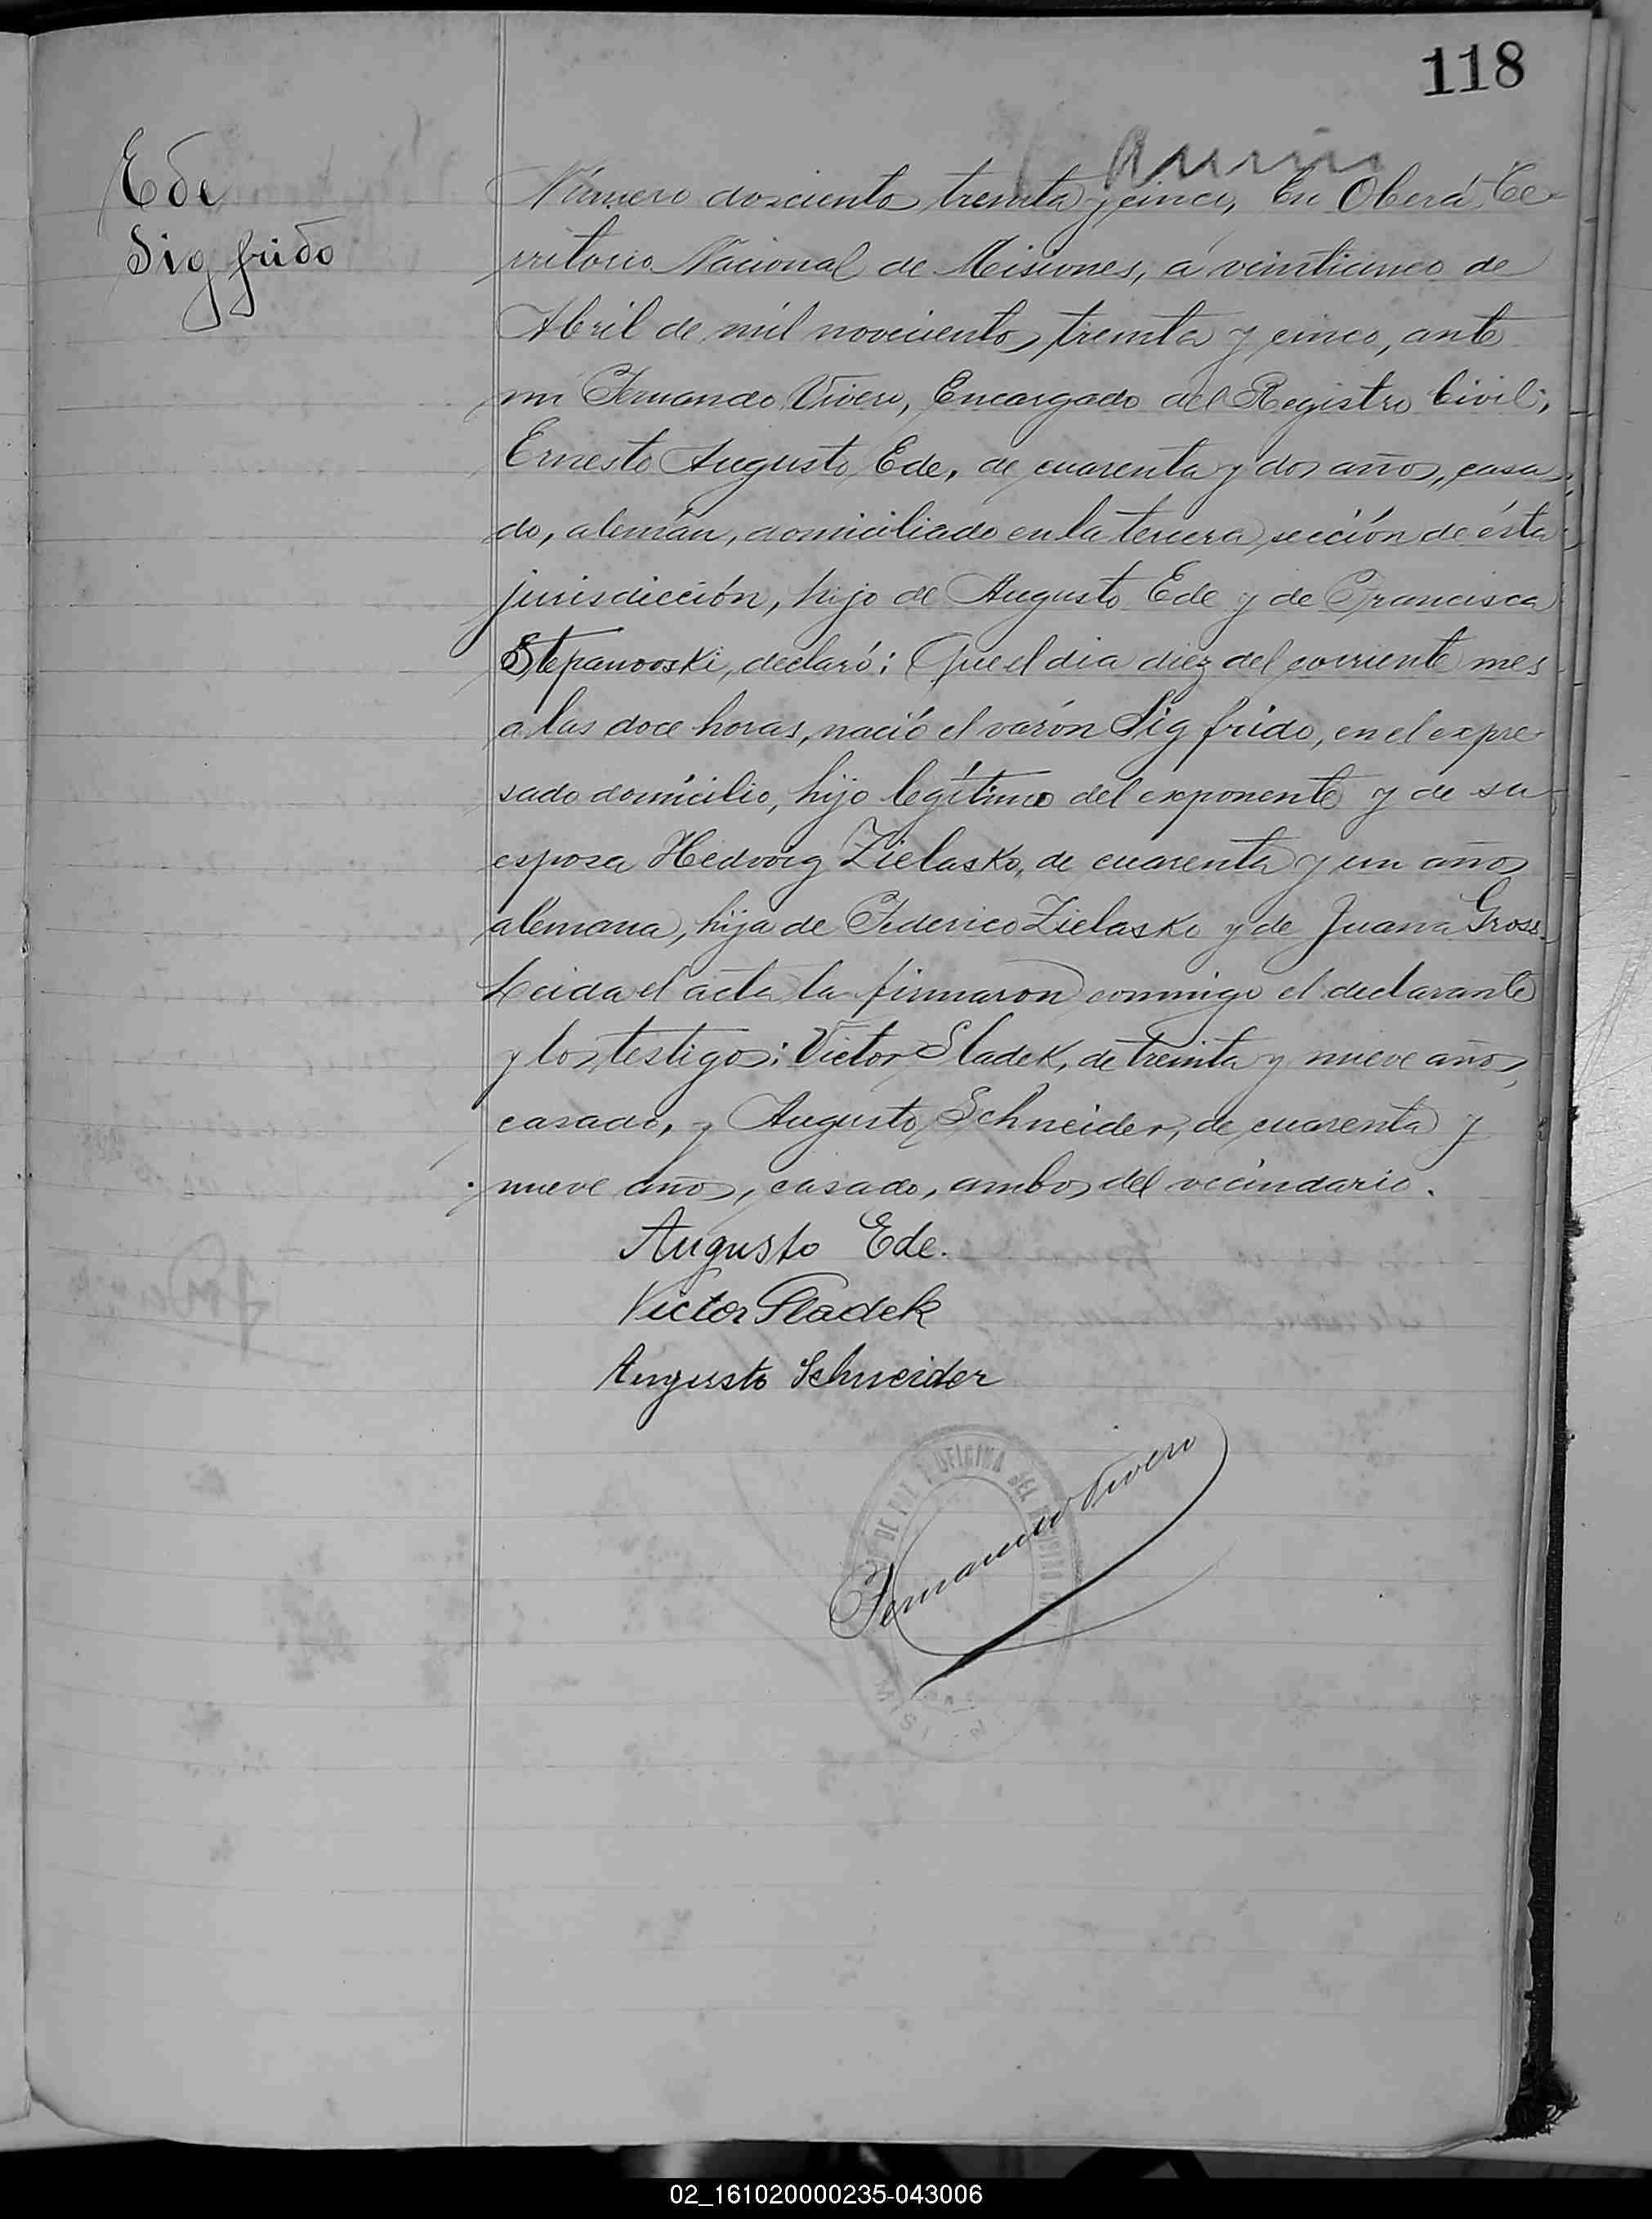 118
Ede
Sigfrido
Número doscientos treinta y cinco, En Oberá, Te-
rritorio Nacional de Misiones, á veinticinco de
Abril de mil novecientos treinta y cinco, ante
mi Fernando Vivero, Encargado del Registro Civil;
Ernesto Augusto Ede, de cuarenta y dos años, casa-
do, alemán, domiciliado en la tercera sección de ésta
jurisdicción, hijo de Augusto Ede y de Francisca
Stepanwoski, declaró: Que el dia diez del corriente mes
a las doce horas, nació el varón Sigfrido, en el expre-
sado domicilio, hijo legítimo del exponente y de su
esposa Hedwig Zielasko, de cuarenta y un años
alemana, hija de Federico Zielasko y de Juana Gross.
Leida el acta la firmaron conmigo el declarante
y los testigos: Victor Sladek, de treinta y nueve años,
casado, y Augusto Schneider, de cuarenta y
nueve años, casado, ambos del vecindario.
Augusto Ede.
Victor Sladek
Augusto Schneider
Fernando Vivero
DE PAZ Y OFICINA DEL REGISTRO
02_161020000235-043006